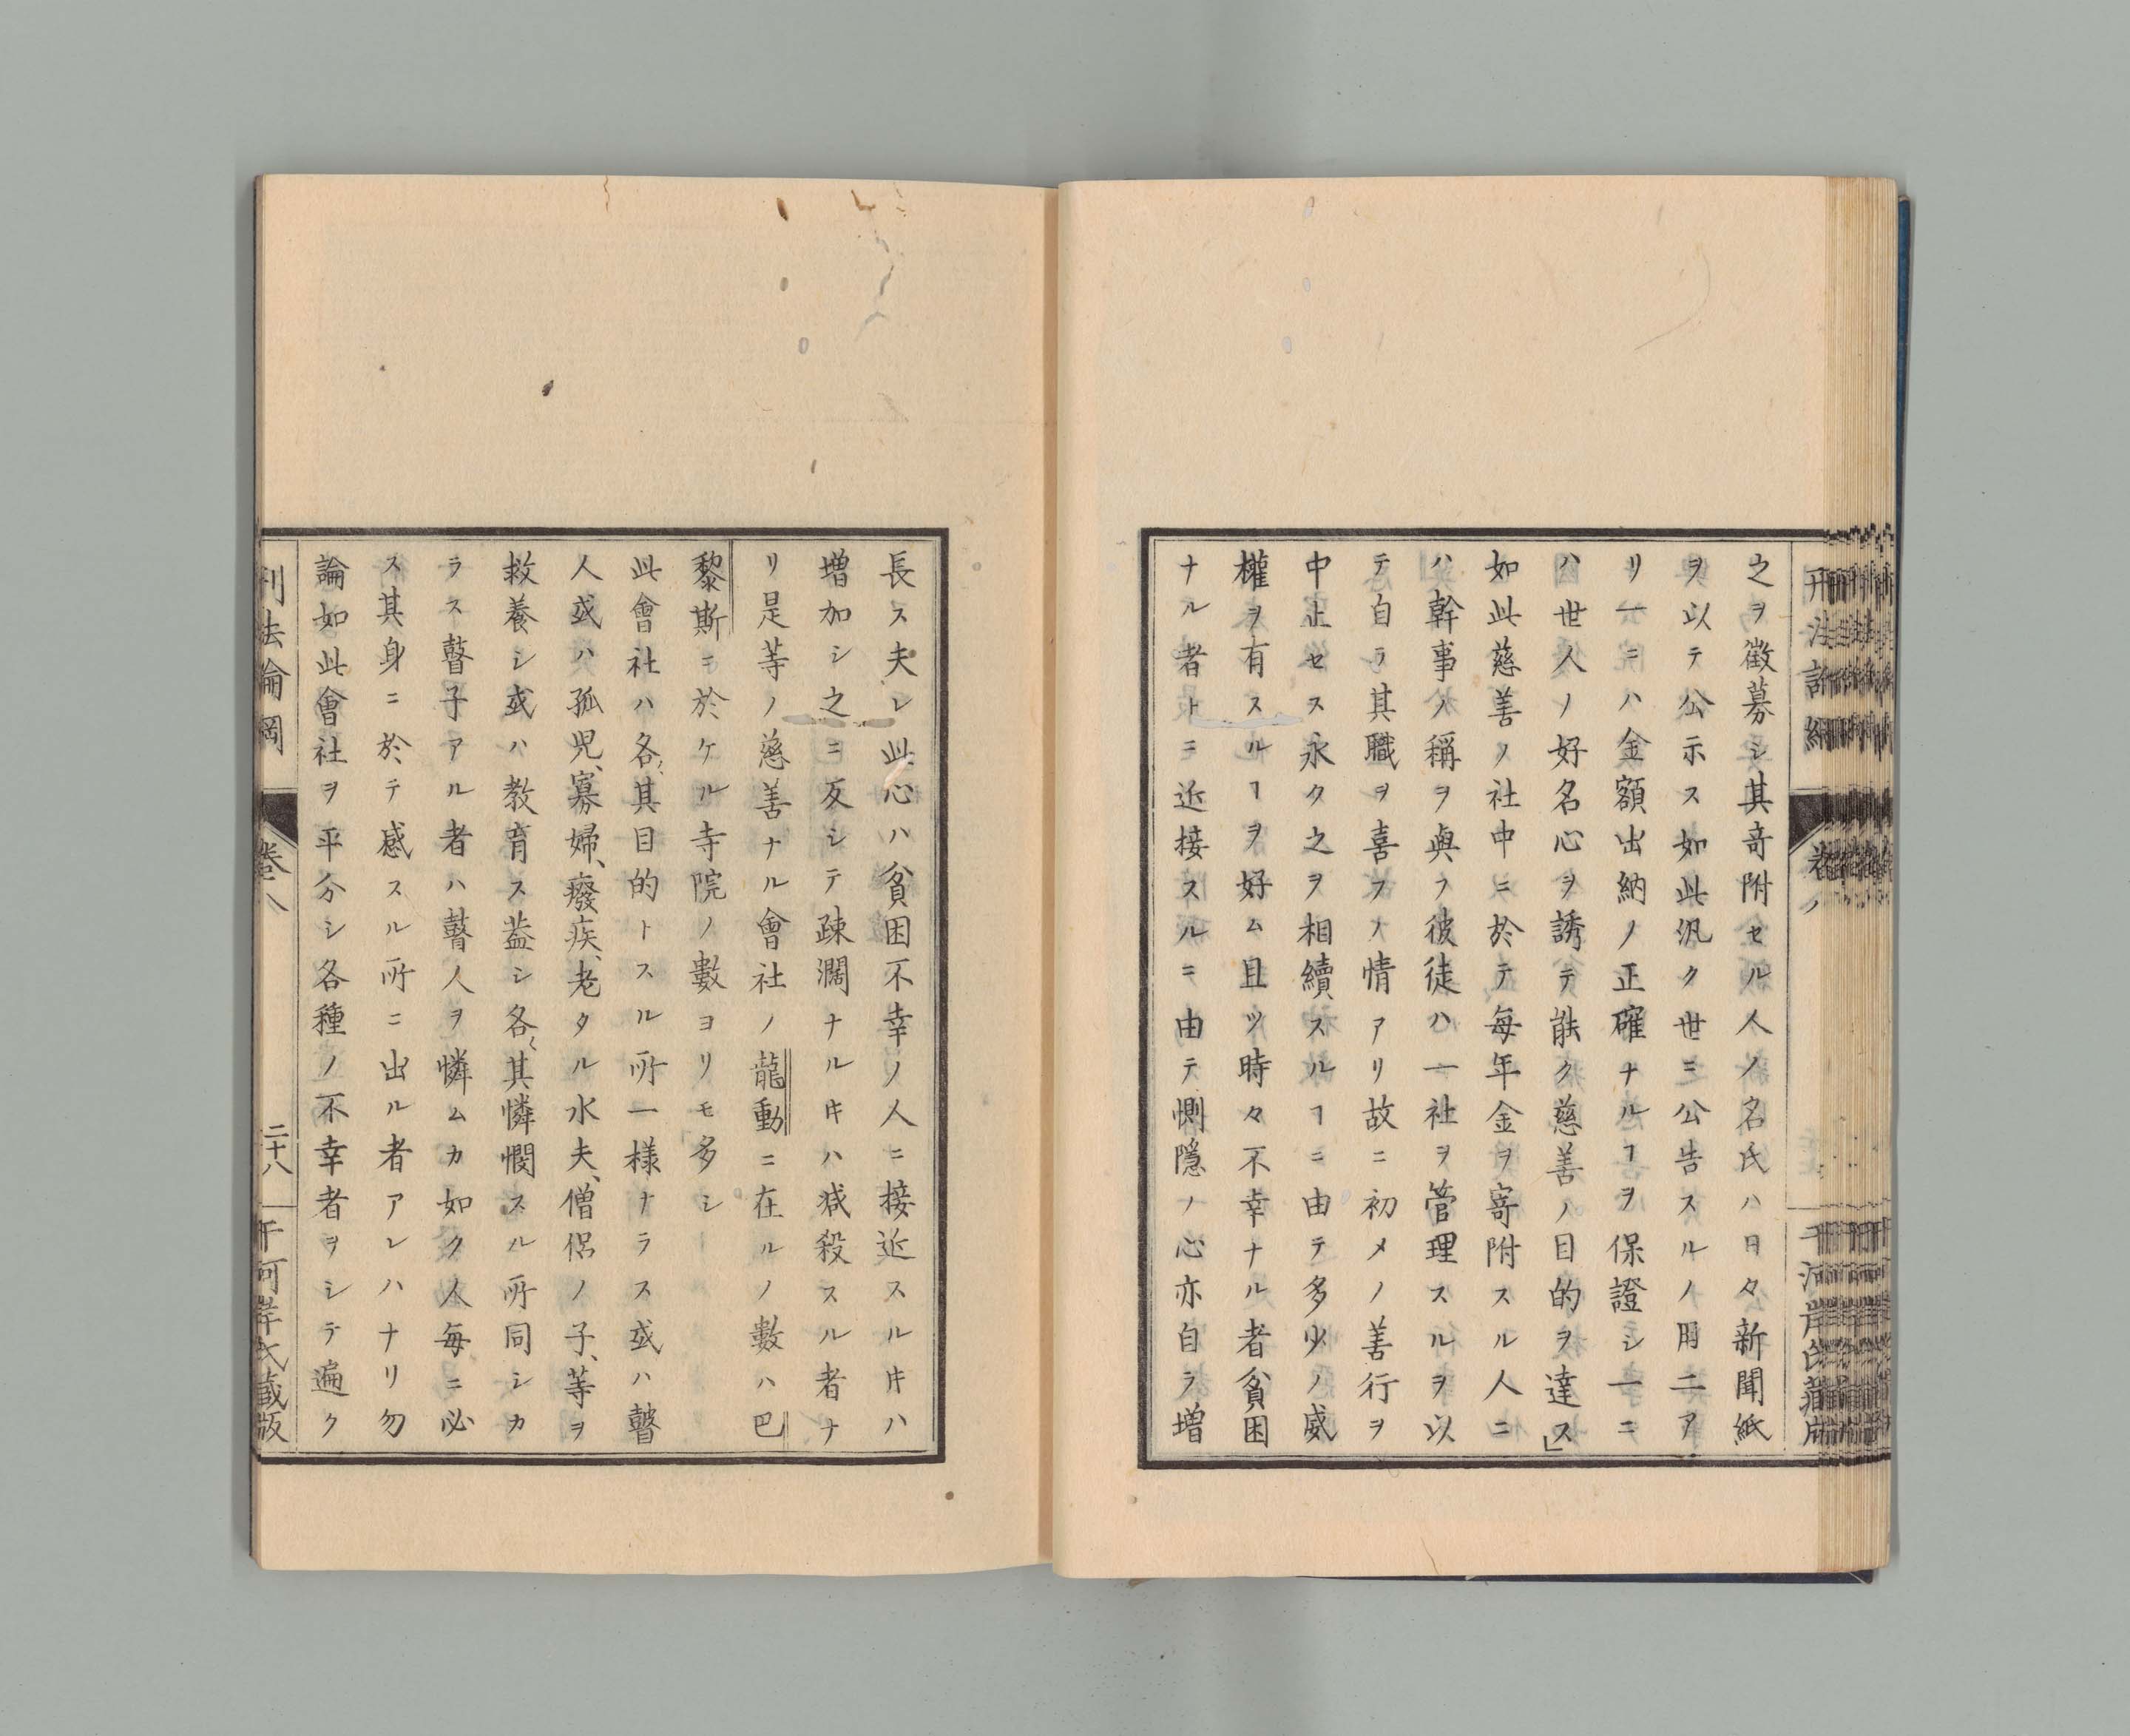 之ヲ徴募シ其奇附セル人ノ名氏ハ日々新聞紙
ヲ以テ公示ス如此汎ク世ニ公告スルノ用二ア
リ一ニハ金額出納ノ正確ナルヿヲ保證シ一ニ
ハ世人ノ好名心ヲ誘テ能ク慈善ノ目的ヲ達ス」
如此慈善ノ社中ニ於テ毎年金ヲ寄附スル人ニ
ハ幹事ノ稱ヲ與フ彼徒ハ一社ヲ管理スルヲ以
テ自ラ其職ヲ喜フノ情アリ故ニ初メノ善行ヲ
中止セス永ク之ヲ相續スルヿニ由テ多少ノ威
權ヲ有スルヿヲ好ム且ツ時々不幸ナル者貧困
ナル者トニ近接スルニ由テ惻隠ノ心亦自ラ増
長ス夫レ此心ハ貧困不幸ノ人ニ接近スル𪜈ハ
増加シ之ニ反シテ疎濶ナル𪜈ハ減殺スル者ナ
リ是等ノ慈善ナル會社ノ龍動ニ在ルノ數ハ巴
黎斯ニ於ケル寺院ノ數ヨリモ多シ
此會社ハ各〻其目的トスル所一様ナラス或ハ瞽
人或ハ孤児、寡婦、癈疾、老タル水夫、僧侶ノ子、等ヲ
救養シ或ハ教育ス蓋シ各〻其憐憫スル所同シカ
ラス瞽子アル者ハ瞽人ヲ憐ムカ如ク人毎ニ必
ス其身ニ於テ感スル所ニ出ル者アレハナリ勿
論如此會社ヲ平分シ各種ノ不幸者ヲシテ遍ク
刑法論綱
卷八
二十八
千河岸氏藏版